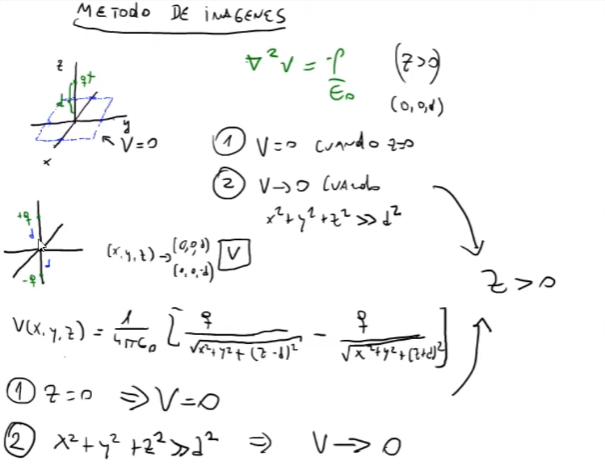 METODO DE IMAGENES
∇²V = -ρ/ε₀ (z>0)
(0,0,d)
z
q+
d
y
x
V=0
① V=0 CUANDO z=0
② V→0 CUANDO
x²+y²+z² ≫ d²
+q
d
d
-q
(x,y,z) → (0,0,d)
(0,0,-d)
V
z>0
V(x,y,z) = 1/4πε₀ [ q/√x²+y²+(z-d)² - q/√x²+y²+(z+d)² ]
① z=0 ⇒ V=0
② x²+y²+z² ≫ d² ⇒ V→0